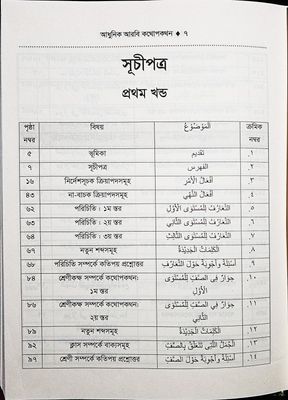 আধুনিক আরবি কথোপকথন ♦ ৭
সূচীপত্র
প্রথম খন্ড
পৃষ্ঠা নম্বর বিষয় اَلْمَوْضُوْعُ ক্রমিক নম্বর
৫ ভূমিকা تقديم ১.
৭ সূচীপত্র الفهرس ২.
১৬ নির্দেশসূচক ক্রিয়াপদসমূহ أَفْعَالُ الْأَمْرِ ৩.
৪৩ না-বাচক ক্রিয়াপদসমূহ أَفْعَالُ النَّهْيِ ৪.
৬২ পরিচিতি : ১ম স্তর التَّعَارُفُ لِلْمُسْتَوَى الْأَوَّلِ ৫.
৬৩ পরিচিতি : ২য় স্তর التَّعَارُفُ لِلْمُسْتَوَى الثَّانِي ৬.
৬৪ পরিচিতি : ৩য় স্তর التَّعَارُفُ لِلْمُسْتَوَى الثَّالِثِ ৭.
৬৭ নতুন শব্দসমূহ الْكَلِمَاتُ الْجَدِيْدَةُ ৮.
৬৮ পরিচিতি সম্পর্কে কতিপয় প্রশ্নোত্তর أَسْئِلَةٌ وَأَجْوِبَةٌ حَوْلَ التَّعَارُفِ ৯.
৮৪ শ্রেণীকক্ষ সম্পর্কে কথোপকথন: ১ম স্তর حِوَارٌ فِي الصَّفِّ لِلْمُسْتَوَى الْأَوَّلِ ১০.
৮৬ শ্রেণীকক্ষ সম্পর্কে কথোপকথন: ২য় স্তর حِوَارٌ فِي الصَّفِّ لِلْمُسْتَوَى الثَّانِي ১১.
৮৯ নতুন শব্দসমূহ الْكَلِمَاتُ الْجَدِيْدَةُ ১২.
৯২ ক্লাস সম্পর্কে বাক্যসমূহ الْجُمَلُ الَّتِي تَتَعَلَّقُ بِالصَّفِّ ১৩.
৯৭ শ্রেণী সম্পর্কে কতিপয় প্রশ্নোত্তর أَسْئِلَةٌ وَأَجْوِبَةٌ حَوْلَ الصَّفِّ ১৪.